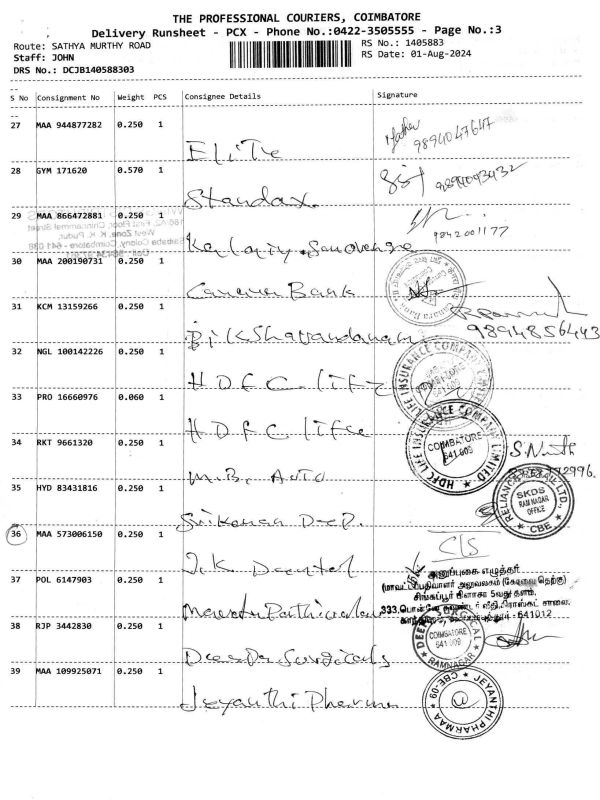 THE PROFESSIONAL COURIERS, COIMBATORE
Delivery Runsheet - PCX - Phone No.:0422-3505555 - Page No.:3
Route: SATHYA MURTHY ROAD
RS No.: 1405883
Staff: JOHN
RS Date: 01-Aug-2024
DRS No.: DCJB140588303
S No Consignment No Weight PCS Consignee Details Signature
27 MAA 944877282 0.250 1
9894047647
Elite
28 GYM 171620 0.570 1
Standax
29 MAA 866472881 0.250 1
9842001177
30 MAA 200190731 0.250 1
Canara Bank
31 KCM 13159266 0.250 1
9894856443
32 NGL 100142226 0.250 1
HDFC life
33 PRO 16660976 0.060 1
HDFC life
HDFC LIFE INSURANCE COMPANY LIMITED
COIMBATORE
641 009
34 RKT 9661320 0.250 1
M.B. Auto
35 HYD 83431816 0.250 1
SKDS
RAM NAGAR
OFFICE
CBE
36 MAA 573006150 0.250 1
C/S
J.K Dental
அனுப்புகை எழுத்தர்
37 POL 6147903 0.250 1
சிங்கப்பூர் பிளாசா 5வது தளம்,
641012
38 RJP 3442830 0.250 1
COIMBATORE
641 009
RAMNAGAR
Deepa Surgicals
39 MAA 109925071 0.250 1
Jeyanthi Pharma
JEYANTHI PHARMA
CBE-09